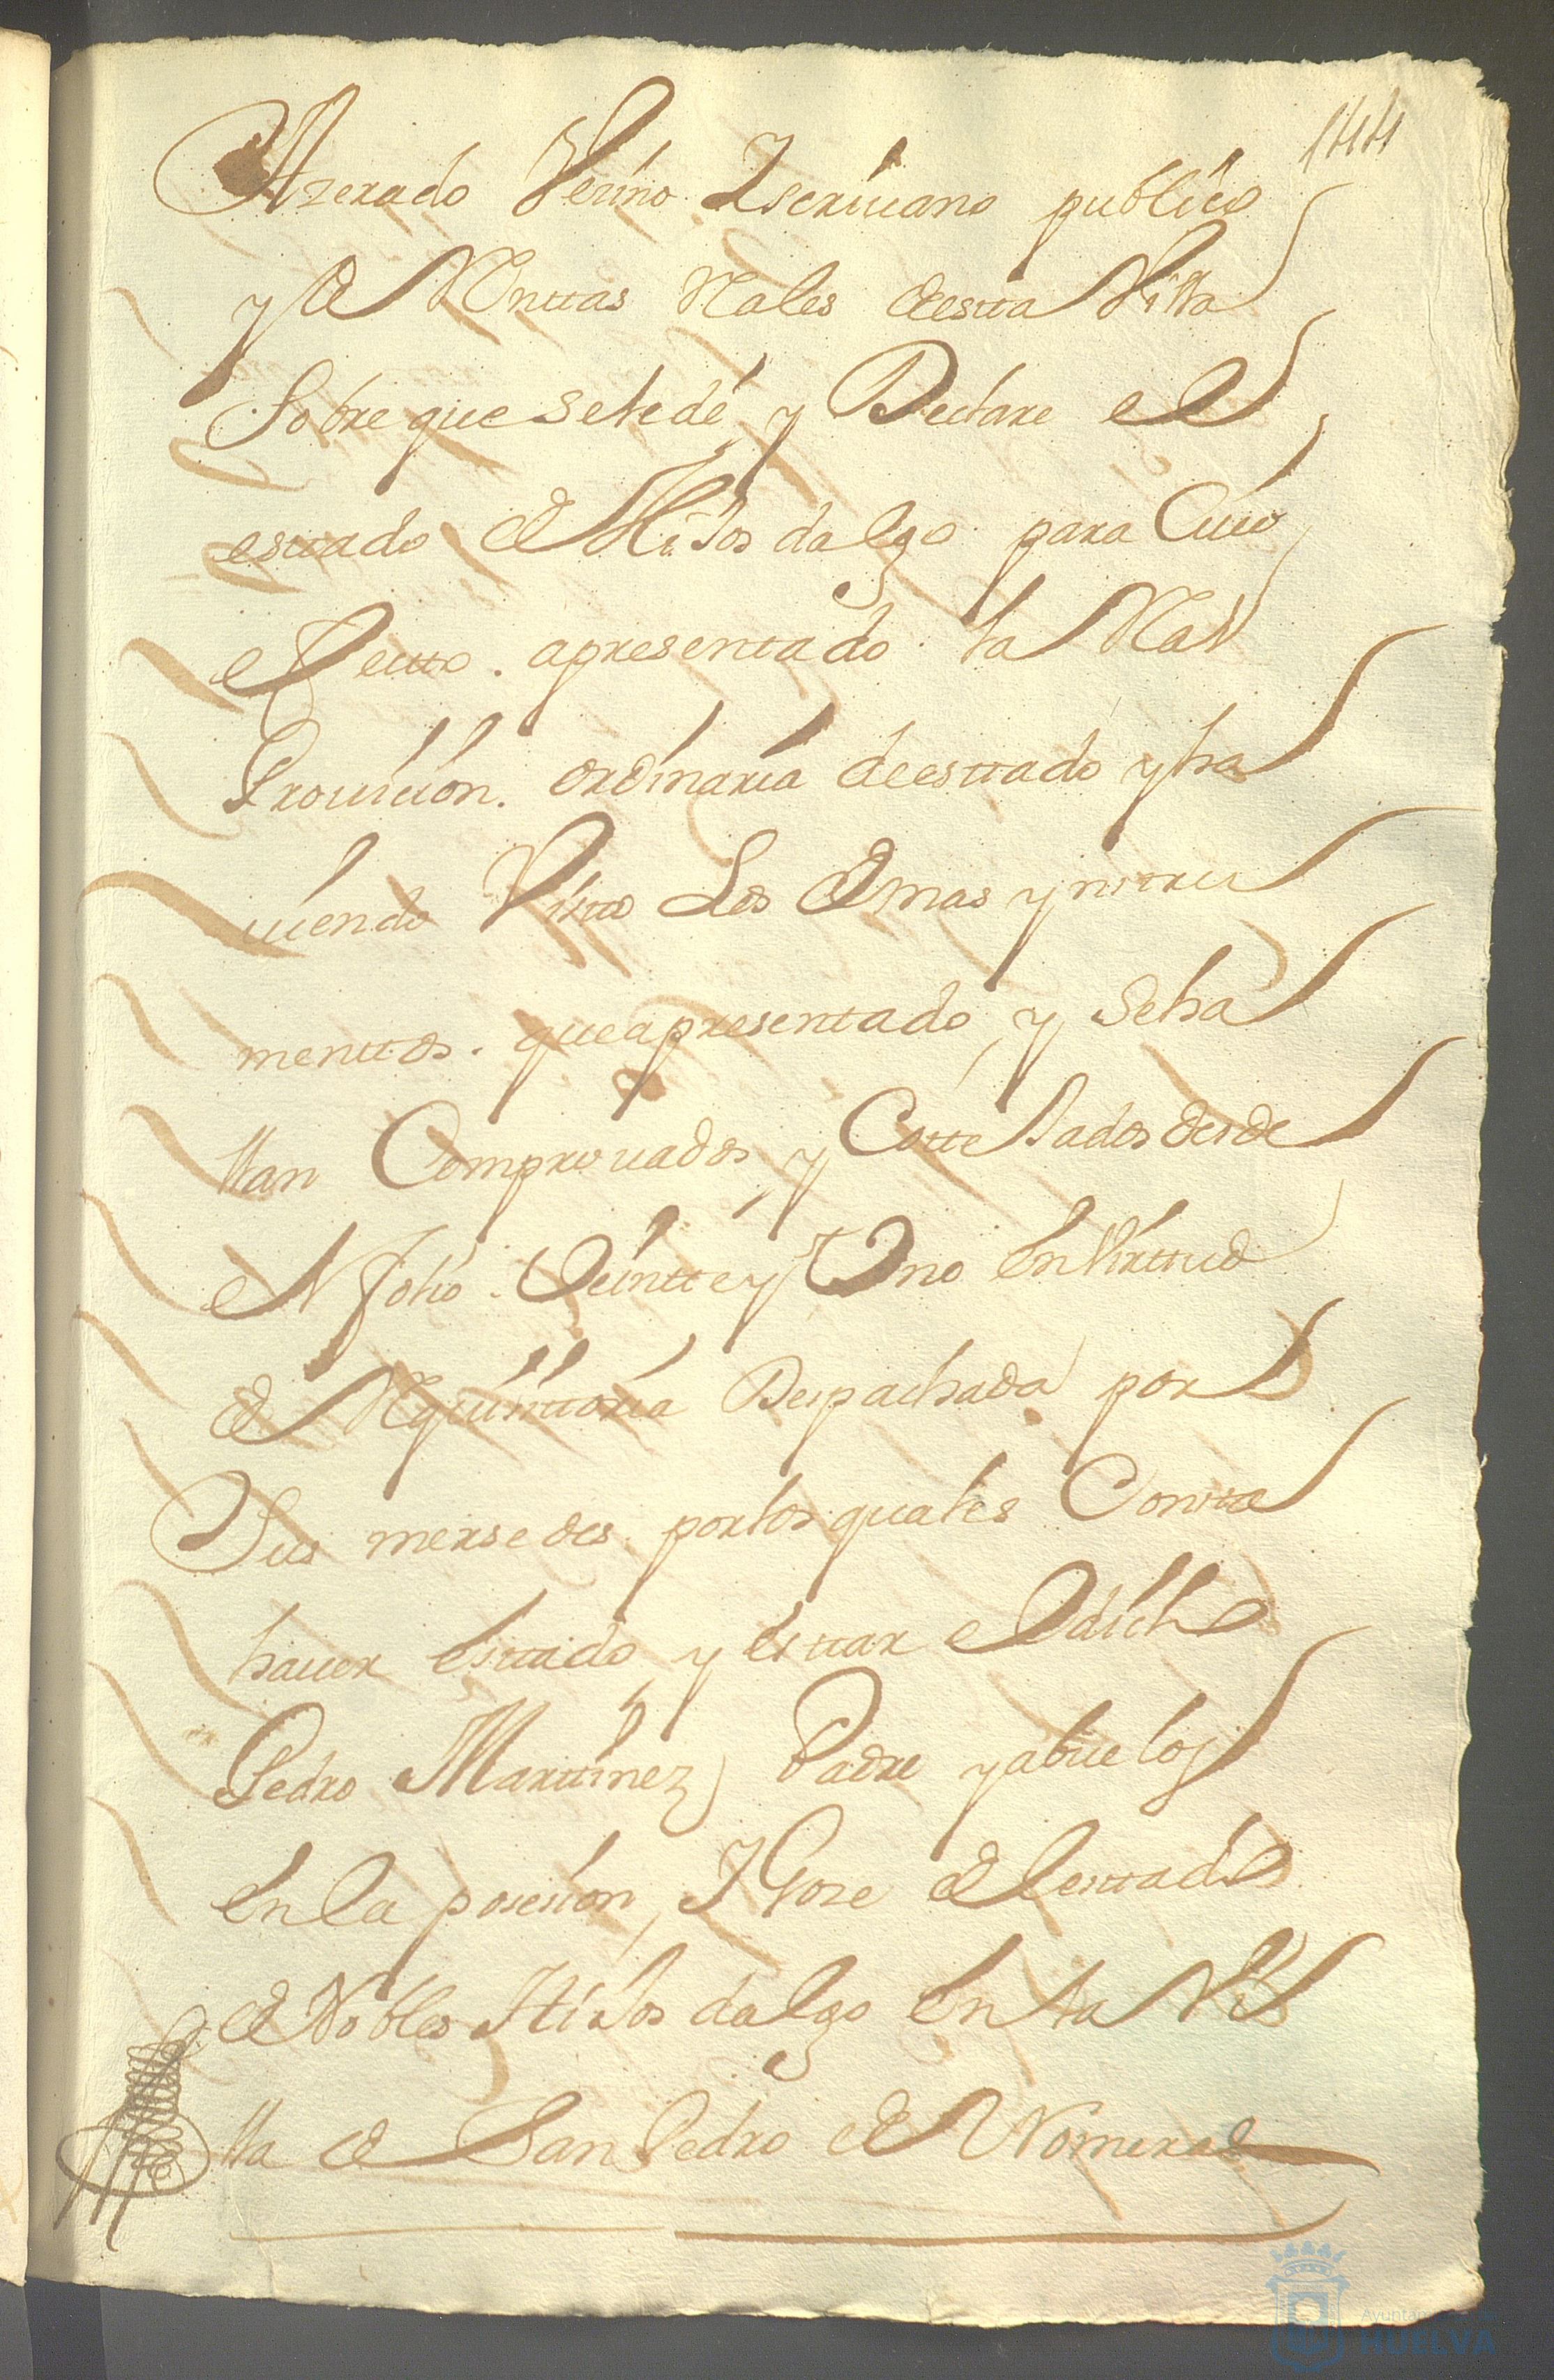 144
Azerado Vezino Escriuano publico
y de Renttas Rales de estta Villa
Sobre que se le dé, y Declare el
esttado de Hijos dalgo para Cuio
efectto. a presentado la Ral
Prouicion. ordinaria de esttado y ha
uiendo Vistto Los demas ynstru
menttos. que a presentado, y se ha
llan Comprouados, y Cotte Jados desde
el folio. Veintte y Uno en Virttud
de Requisittoria Despachada por
Sus mersedes. por los quales Constta
hauer esttado, y esttar el dicho
Pedro Marttinez, Padre y abuelos
en la posesion, Y Gose del esttado
de Nobles Hijos dalgo en la Vi
lla de San Pedro el Romeral
Ayuntamiento de
HUELVA